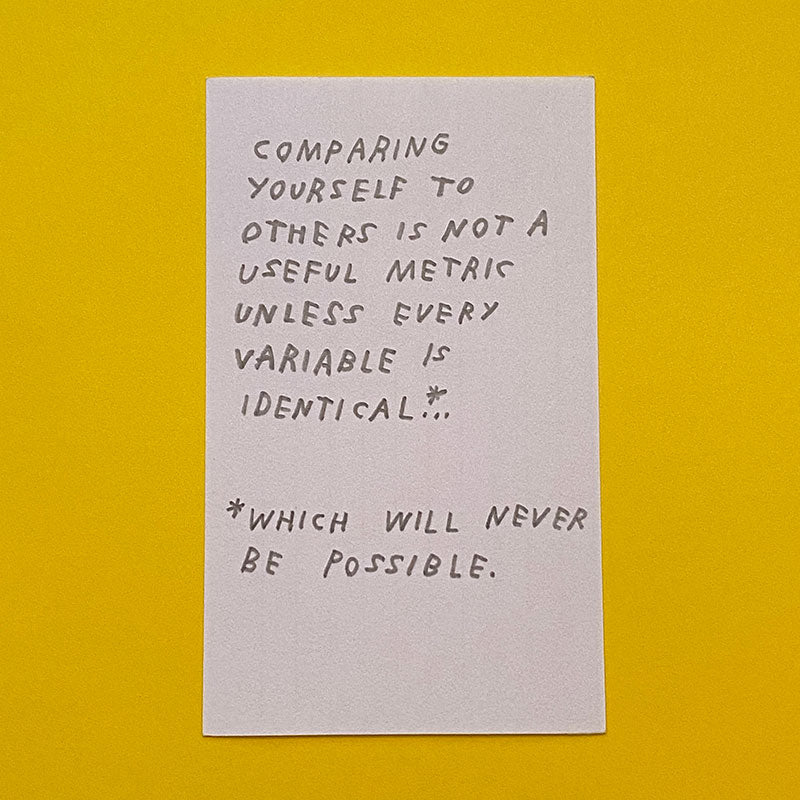 COMPARING
YOURSELF TO
OTHERS IS NOT A
USEFUL METRIC
UNLESS EVERY
VARIABLE IS
IDENTICAL...*
*WHICH WILL NEVER
BE POSSIBLE.